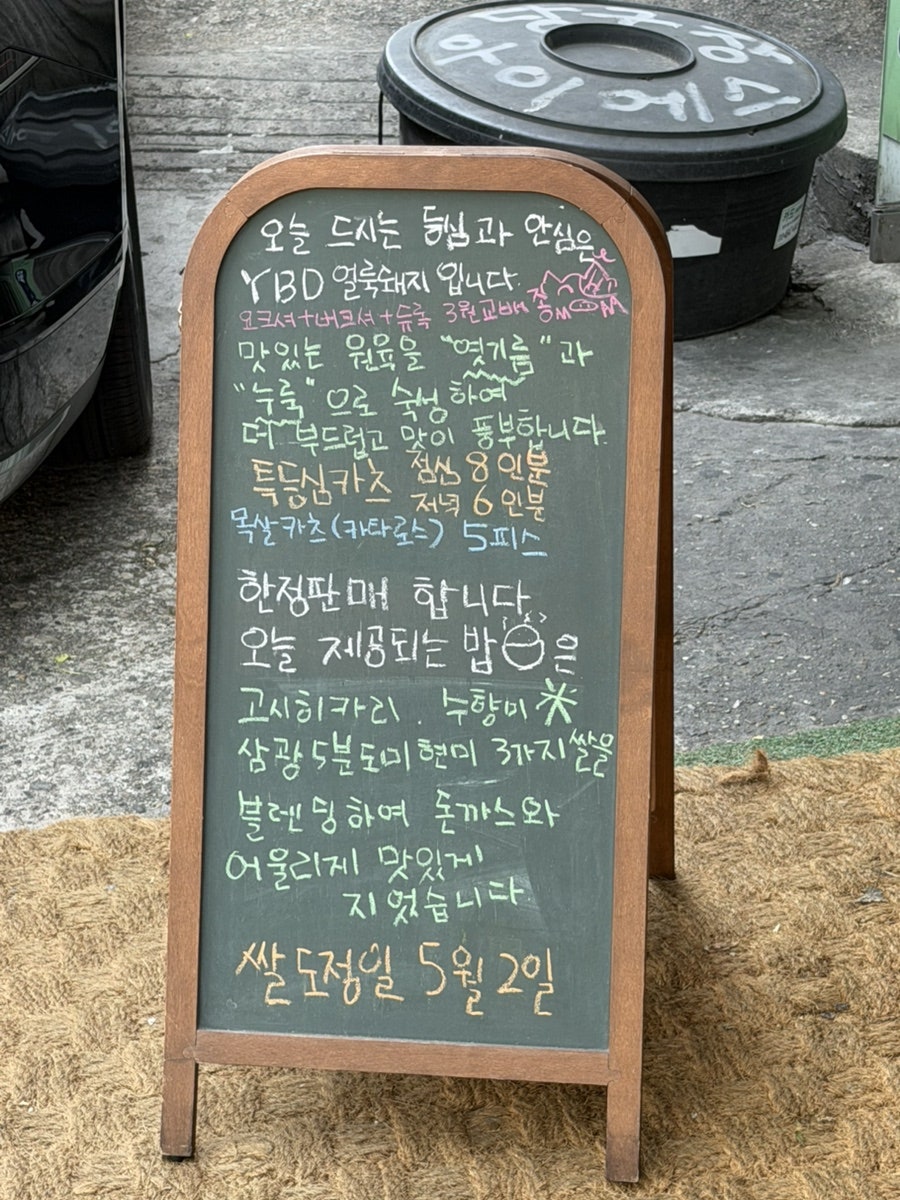 아이에스
오늘 드시는 등심과 안심은
YBD 얼룩돼지 입니다.
요크셔+버크셔+듀록 3원교배종
맛있는 원육을 "엿기름"과
"누룩"으로 숙성하여
더 부드럽고 맛이 풍부합니다.
특등심카츠 점심 8인분
저녁 6인분
목살카츠(카타로스) 5피스
한정판매 합니다
오늘 제공되는 밥은
고시히카리. 수향미
삼광5분도미현미 3가지쌀을
블렌딩하여 돈까스와
어울리게 맛있게
지었습니다
쌀도정일 5월2일